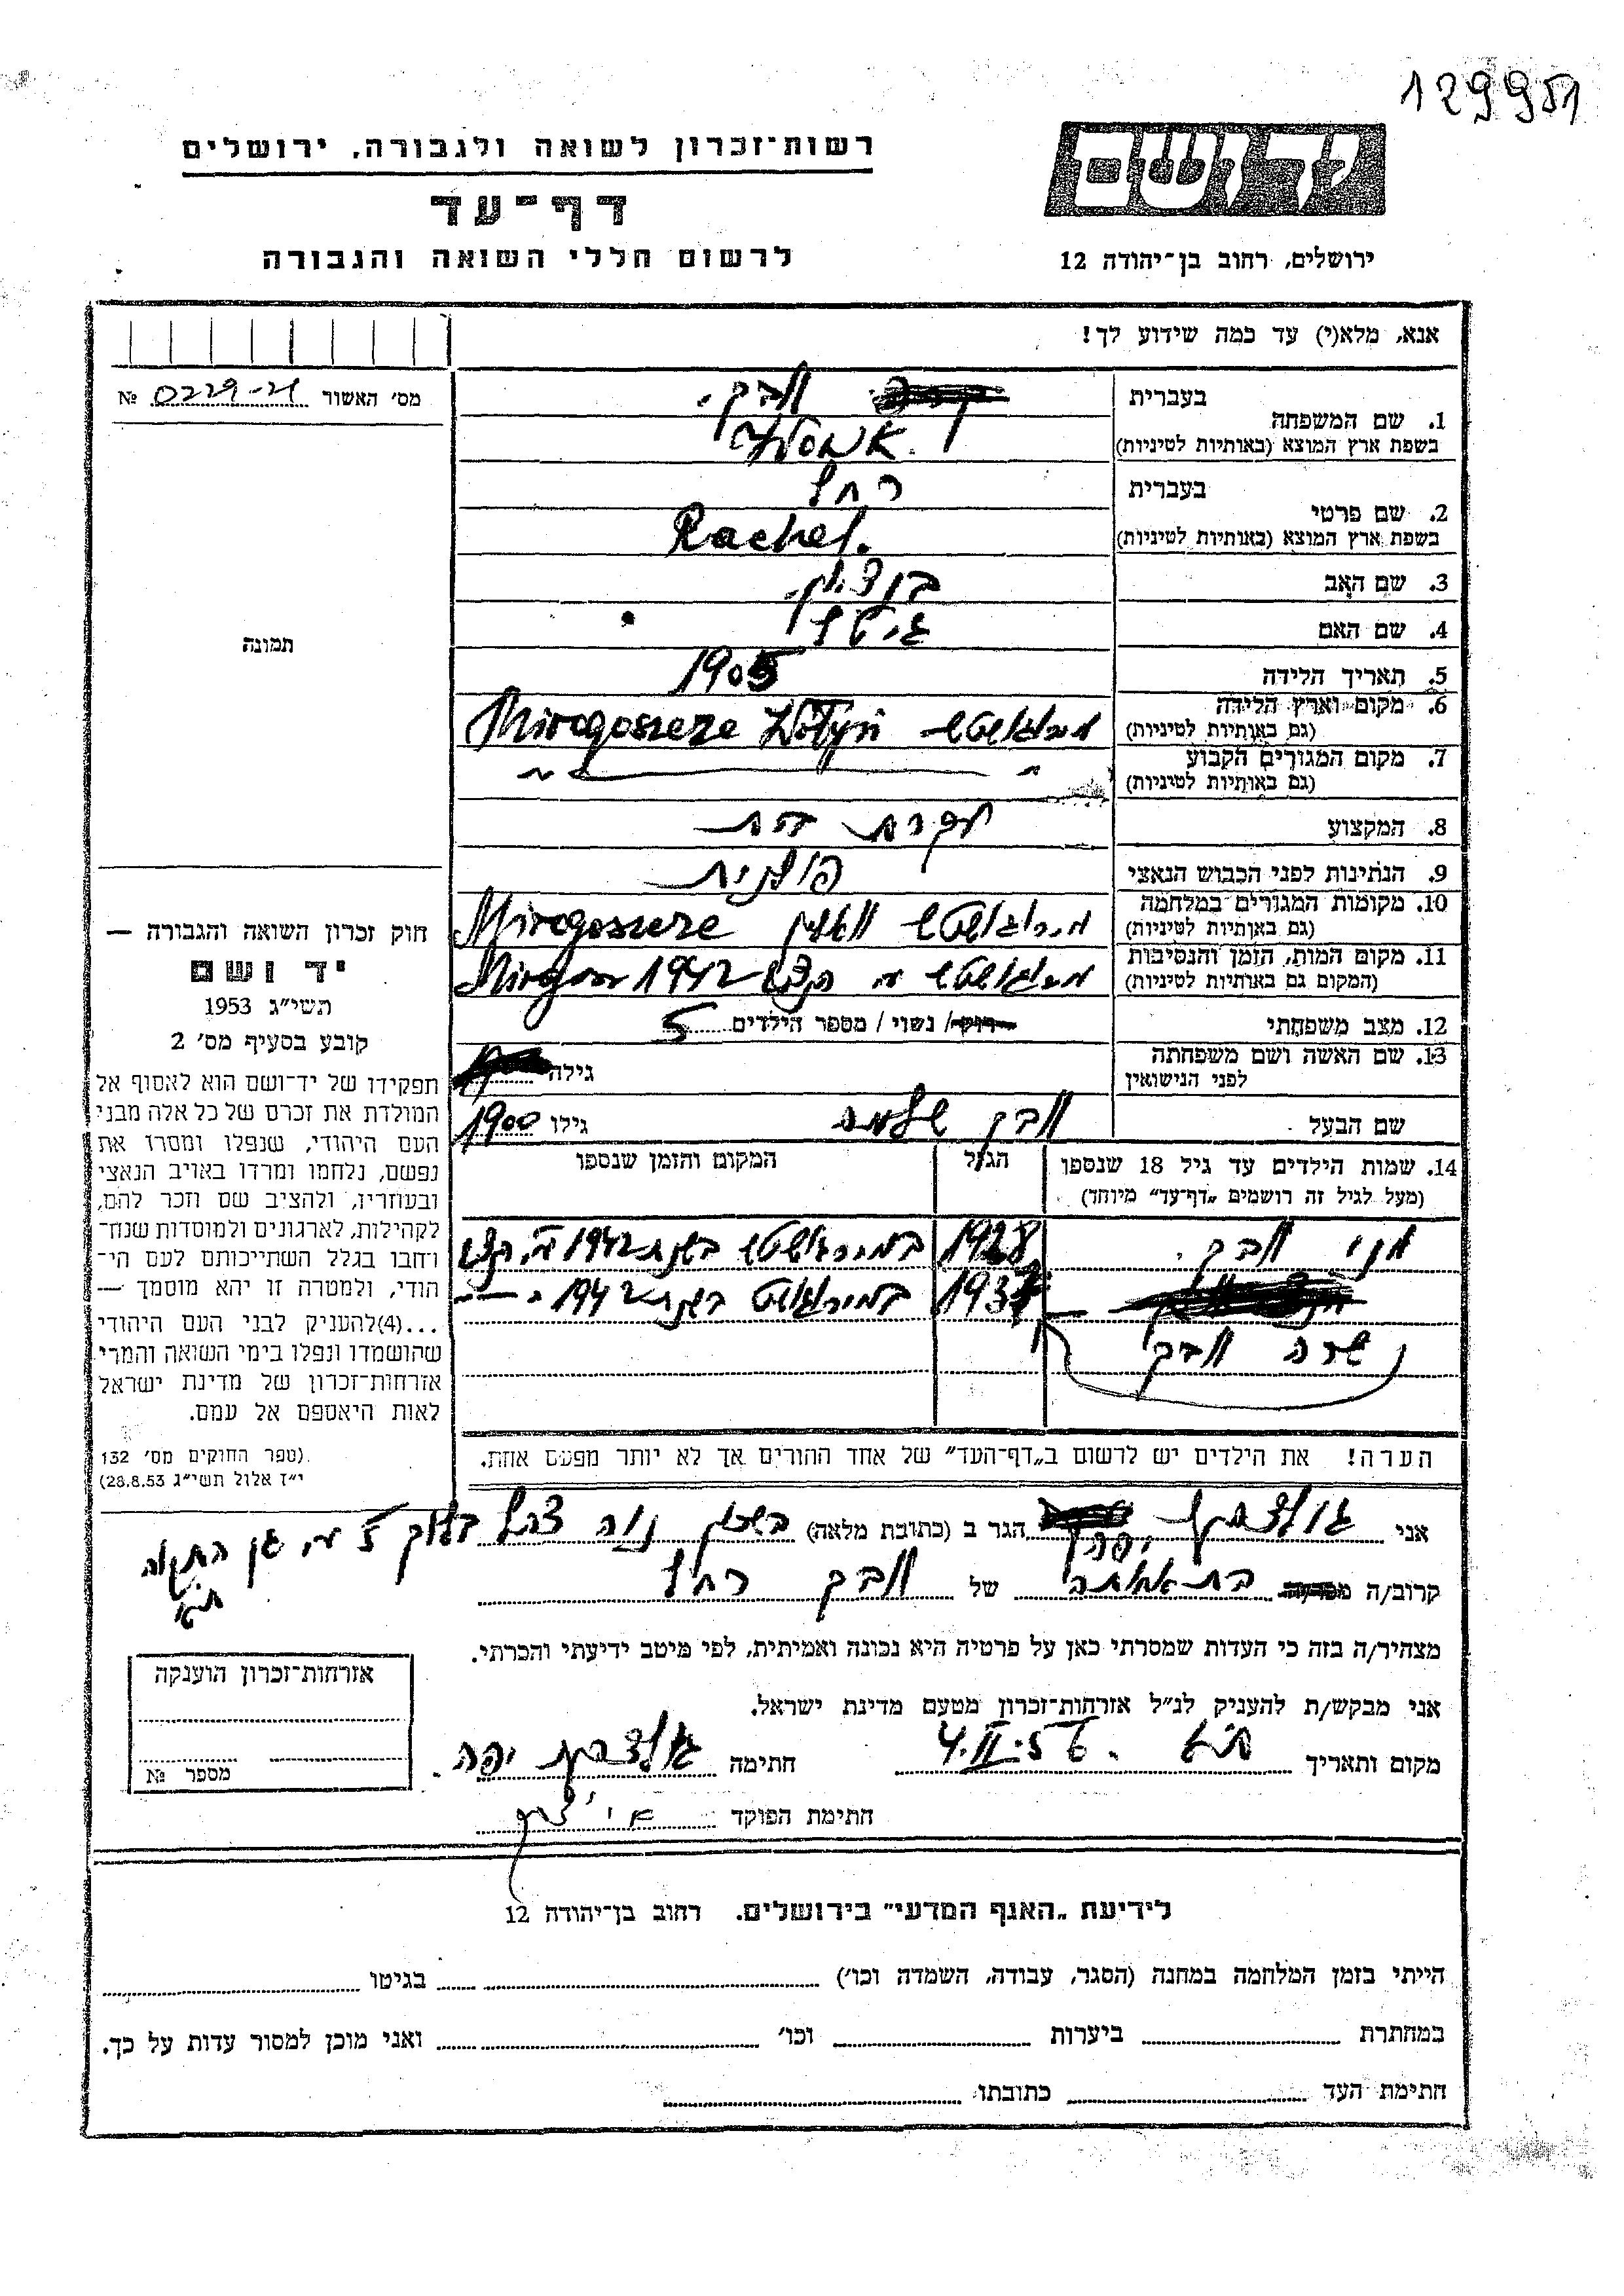 129951
רשות־זכרון לשואה ולגבורה, ירושלים
דף־עד
לרשום חללי השואה והגבורה
יד ושם
ירושלים, רחוב בן־יהודה 12
אנא, מלא(י) עד כמה שידוע לך!
מס' האשור 0229-21 №
תמונה
חוק זכרון השואה והגבורה —
יד ושם
תשי״ג 1953
קובע בסעיף מס' 2
תפקידו של יד־ושם הוא לאסוף אל
המולדת את זכרם של כל אלה מבני
העם היהודי, שנפלו ומסרו את
נפשם, נלחמו ומרדו באויב הנאצי
ובעוזריו, ולהציב שם וזכר להם,
לקהילות, לארגונים ולמוסדות שנח־
רובו בגלל השתייכותם לעם הי־
הודי, ולמטרה זו יהא מוסמך —
...(4)להעניק לבני העם היהודי
שהושמדו ונפלו בימי השואה והמרי
אזרחות־זכרון של מדינת ישראל
לאות היאספם אל עמם.
(ספר החוקים מס' 132
י״ז אלול תשי״ג 28.8.53)
1. שם המשפחה בעברית
בשפת ארץ המוצא (באותיות לטיניות)
2. שם פרטי בעברית רחל
בשפת ארץ המוצא (באותיות לטיניות) Rachel.
3. שם האב בן ציון.
4. שם האם גיטל
5. תאריך הלידה 1905
6. מקום וארץ הלידה
(גם באותיות לטיניות)
7. מקום המגורים הקבוע
(גם באותיות לטיניות)
8. המקצוע עקרת בית
9. הנתינות לפני הכבוש הנאצי פולנית
10. מקומות המגורים במלחמה
(גם באותיות לטיניות)
11. מקום המות, הזמן והנסיבות 1942
(המקום גם באותיות לטיניות)
12. מצב משפחתי רוק / נשוי / מספר הילדים 5
13. שם האשה ושם משפחתה גילה
לפני הנישואין
שם הבעל שלמה גילו 1900
14. שמות הילדים עד גיל 18 שנספו הגיל המקום והזמן שנספו
(מעל לגיל זה רושמים „דף־עד״ מיוחד)
1928 בשנת 1942
1937 בשנת 1942
שרה
הערה! את הילדים יש לרשום ב„דף־העד״ של אחד ההורים אך לא יותר מפעם אחת.
אני הגר ב (כתובת מלאה) בשכון נוה צהל בלוק 5
יפה
קרוב/ה של רחל
מצהיר/ה בזה כי העדות שמסרתי כאן על פרטיה היא נכונה ואמיתית, לפי מיטב ידיעתי והכרתי.
אני מבקש/ת להעניק לנ״ל אזרחות־זכרון מטעם מדינת ישראל.
מקום ותאריך ת״א 4.II.56 חתימה יפה
חתימת הפוקד
אזרחות־זכרון הוענקה
מספר №
לידיעת „האגף המדעי״ בירושלים, רחוב בן־יהודה 12
הייתי בזמן המלחמה במחנה (הסגר, עבודה, השמדה וכו') בגיטו
במחתרת ביערות וכו' ואני מוכן למסור עדות על כך.
חתימת העד כתובתו